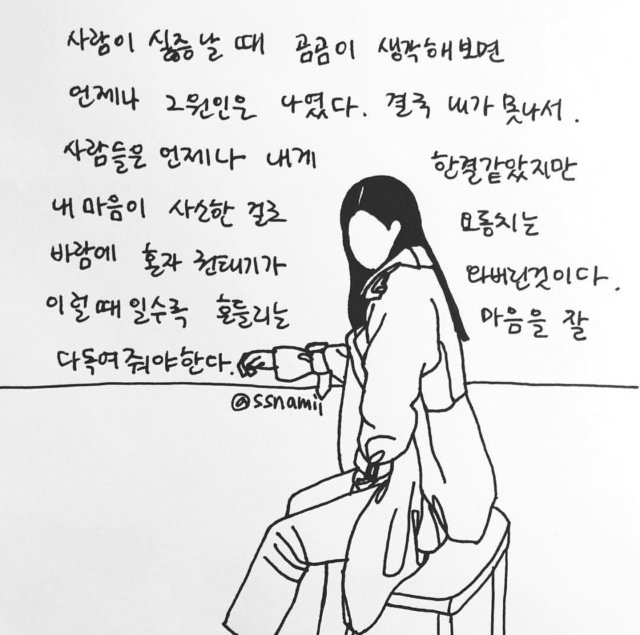 사람이 싫증날 때 곰곰이 생각해보면
언제나 그 원인은 나였다. 결국 내가 못나서.
사람들은 언제나 내게 한결같았지만
내 마음이 사소한 걸로 요동치는
바람에 혼자 권태기가 와버린것이다.
이럴 때 일수록 흔들리는 마음을 잘
다독여 줘야 한다.
@ssnamij